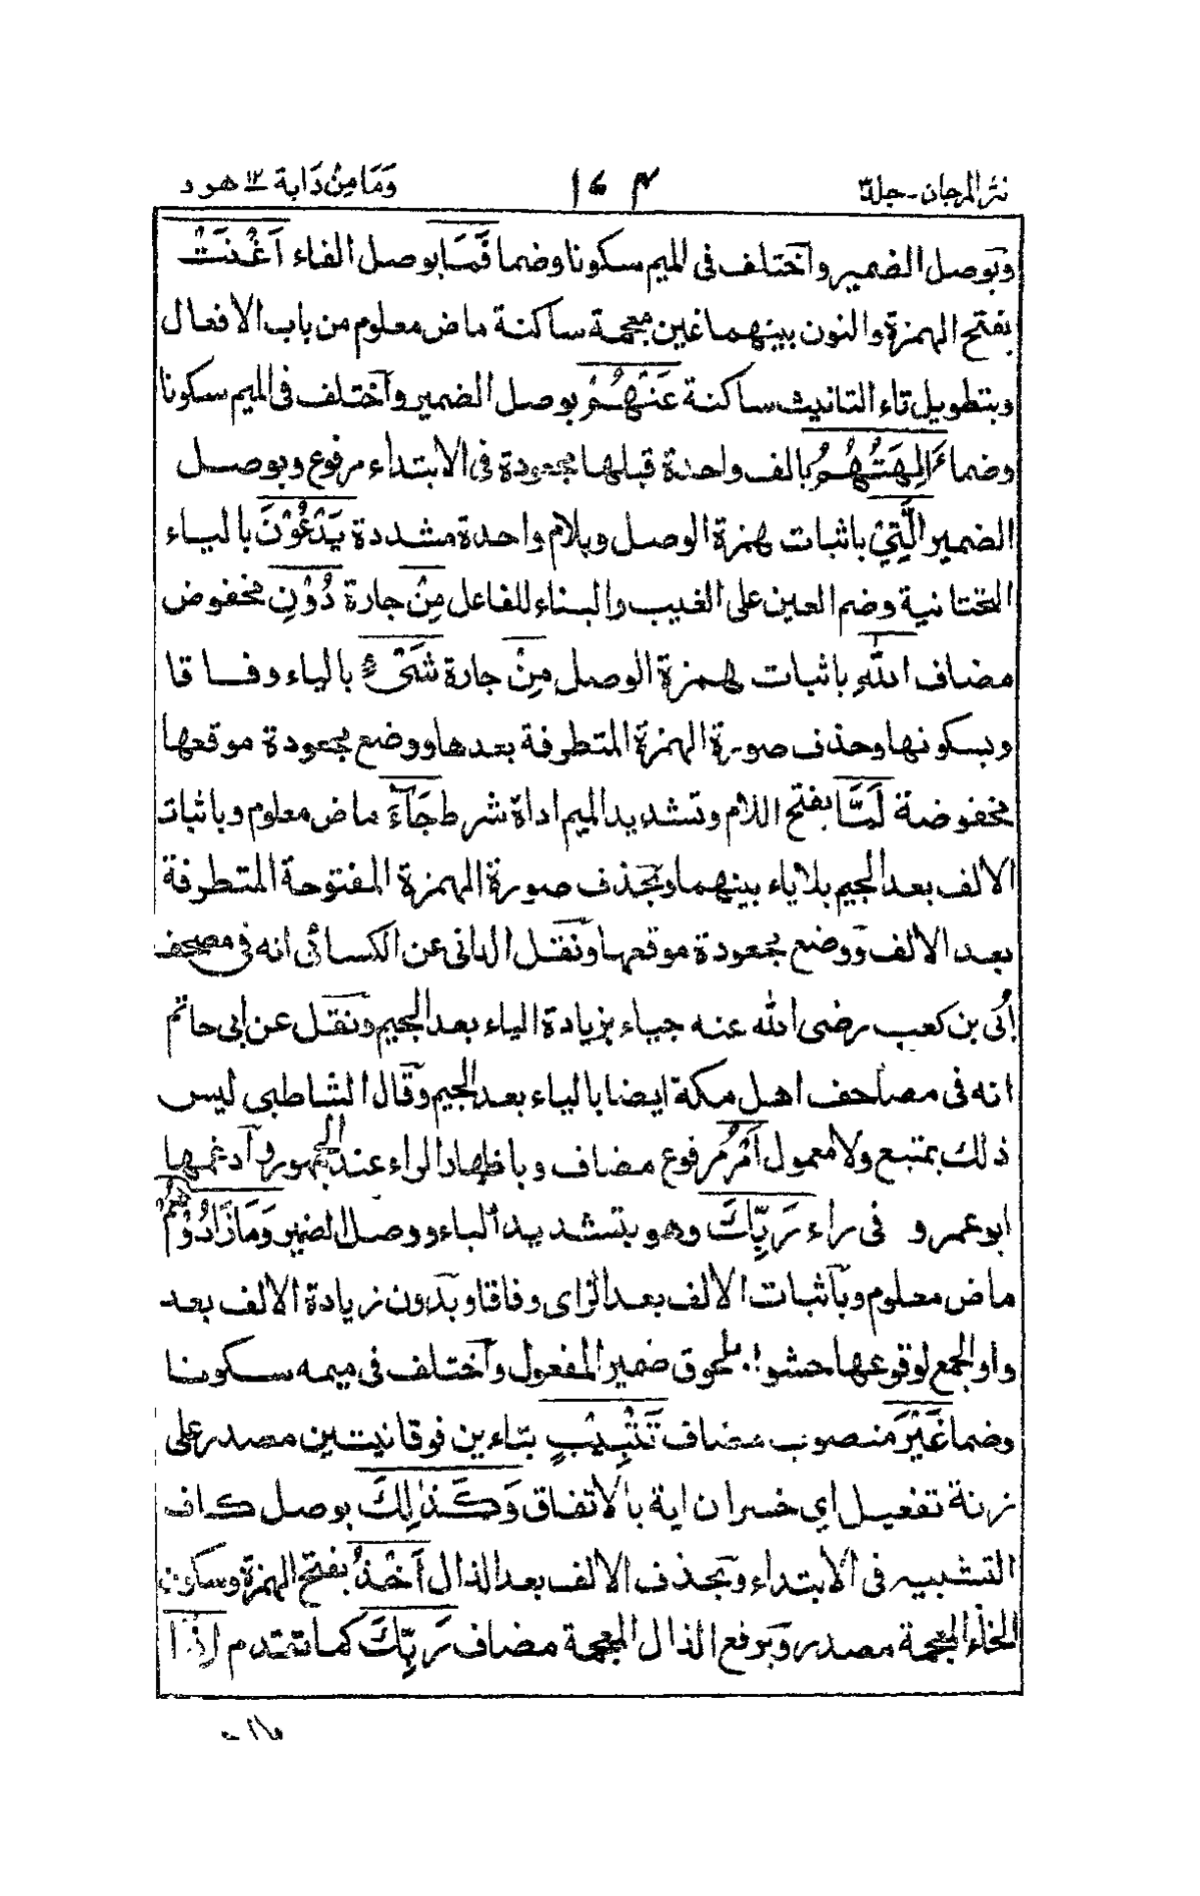 نثر المرجان - جلد٣ ١٦٤ وَمَا مِنْ دَابة ١٢ هود
وبوصل الضمير وآختلف فى الميم سكونا وضما فَمَا بوصل الفاء اَغْنَتْ
بفتح الهمزة والنون بينهما غين معجمة ساكنة ماض معلوم من باب الافعال
وبتطويل تاء التانيث ساكنة عَنْهُمْ بوصل الضمير وآختلف فى الميم سكونا
وضما ءَالِهَتُهُمُ بالف واحدة قبلها مجعودة فى الابتداء مرفوع وبوصل
الضمير الَّتِيْ باثبات همزة الوصل وبلام واحدة مشددة يَدْعُوْنَ بالياء
التحتانية وضم العين على الغيب والبناء للفاعل مِنْ جارة دُوْنِ مخفوض
مضاف اللّٰهِ باثبات همزة الوصل مِنْ جارة شَىْءٍ بالياء وفاقا
وبسكونها وحذف صورة الهمزة المتطرفة بعدها ووضع مجعودة موقعها
مخفوضة لَمَّا بفتح اللام وتشديد الميم اداة شرط جَآءَ ماض معلوم وباثبات
الالف بعد الجيم بلاياء بينهما وبحذف صورة الهمزة المفتوحة المتطرفة
بعد الالف ووضع مجعودة موقعها ونقل الدانى عن الكسائى انه فى مصحف
اُبى بن كعب رضى الله عنه جياء بزيادة الياء بعد الجيم ونقل عن ابى حاتم
انه فى مصاحف اهل مكة ايضا بالياء بعد الجيم وقال الشاطبى ليس
ذلك بمتبع ولا معمول اَمْرُ مرفوع مضاف وباظهار الراء عند الجمهور وآدغمها
ابو عمرو فى راء رَبِّكَ وهو بتشديد الباء ووصل الضمير وَمَا زَادُوْهُمْ
ماض معلوم وبآثبات الالف بعد الزاى وفاقا وبدون زيادة الالف بعد
واو الجمع لوقوعها حشوا بلحوق ضمير المفعول وآختلف فى ميمه سكونا
وضما غَيْرَ منصوب مضاف تَتْبِيْبٍ بتاءين فوقانيتين مصدر على
زنة تفعيل اي خسران اية بالاتفاق وَكَذٰلِكَ بوصل كاف
التشبيه فى الابتداء وبحذف الالف بعد الذال اَخْذُ بفتح الهمزة وسكون
الخاء المعجمة مصدر وبرفع الذال المعجمة مضاف رَبِّكَ كما تقدم اِذَا